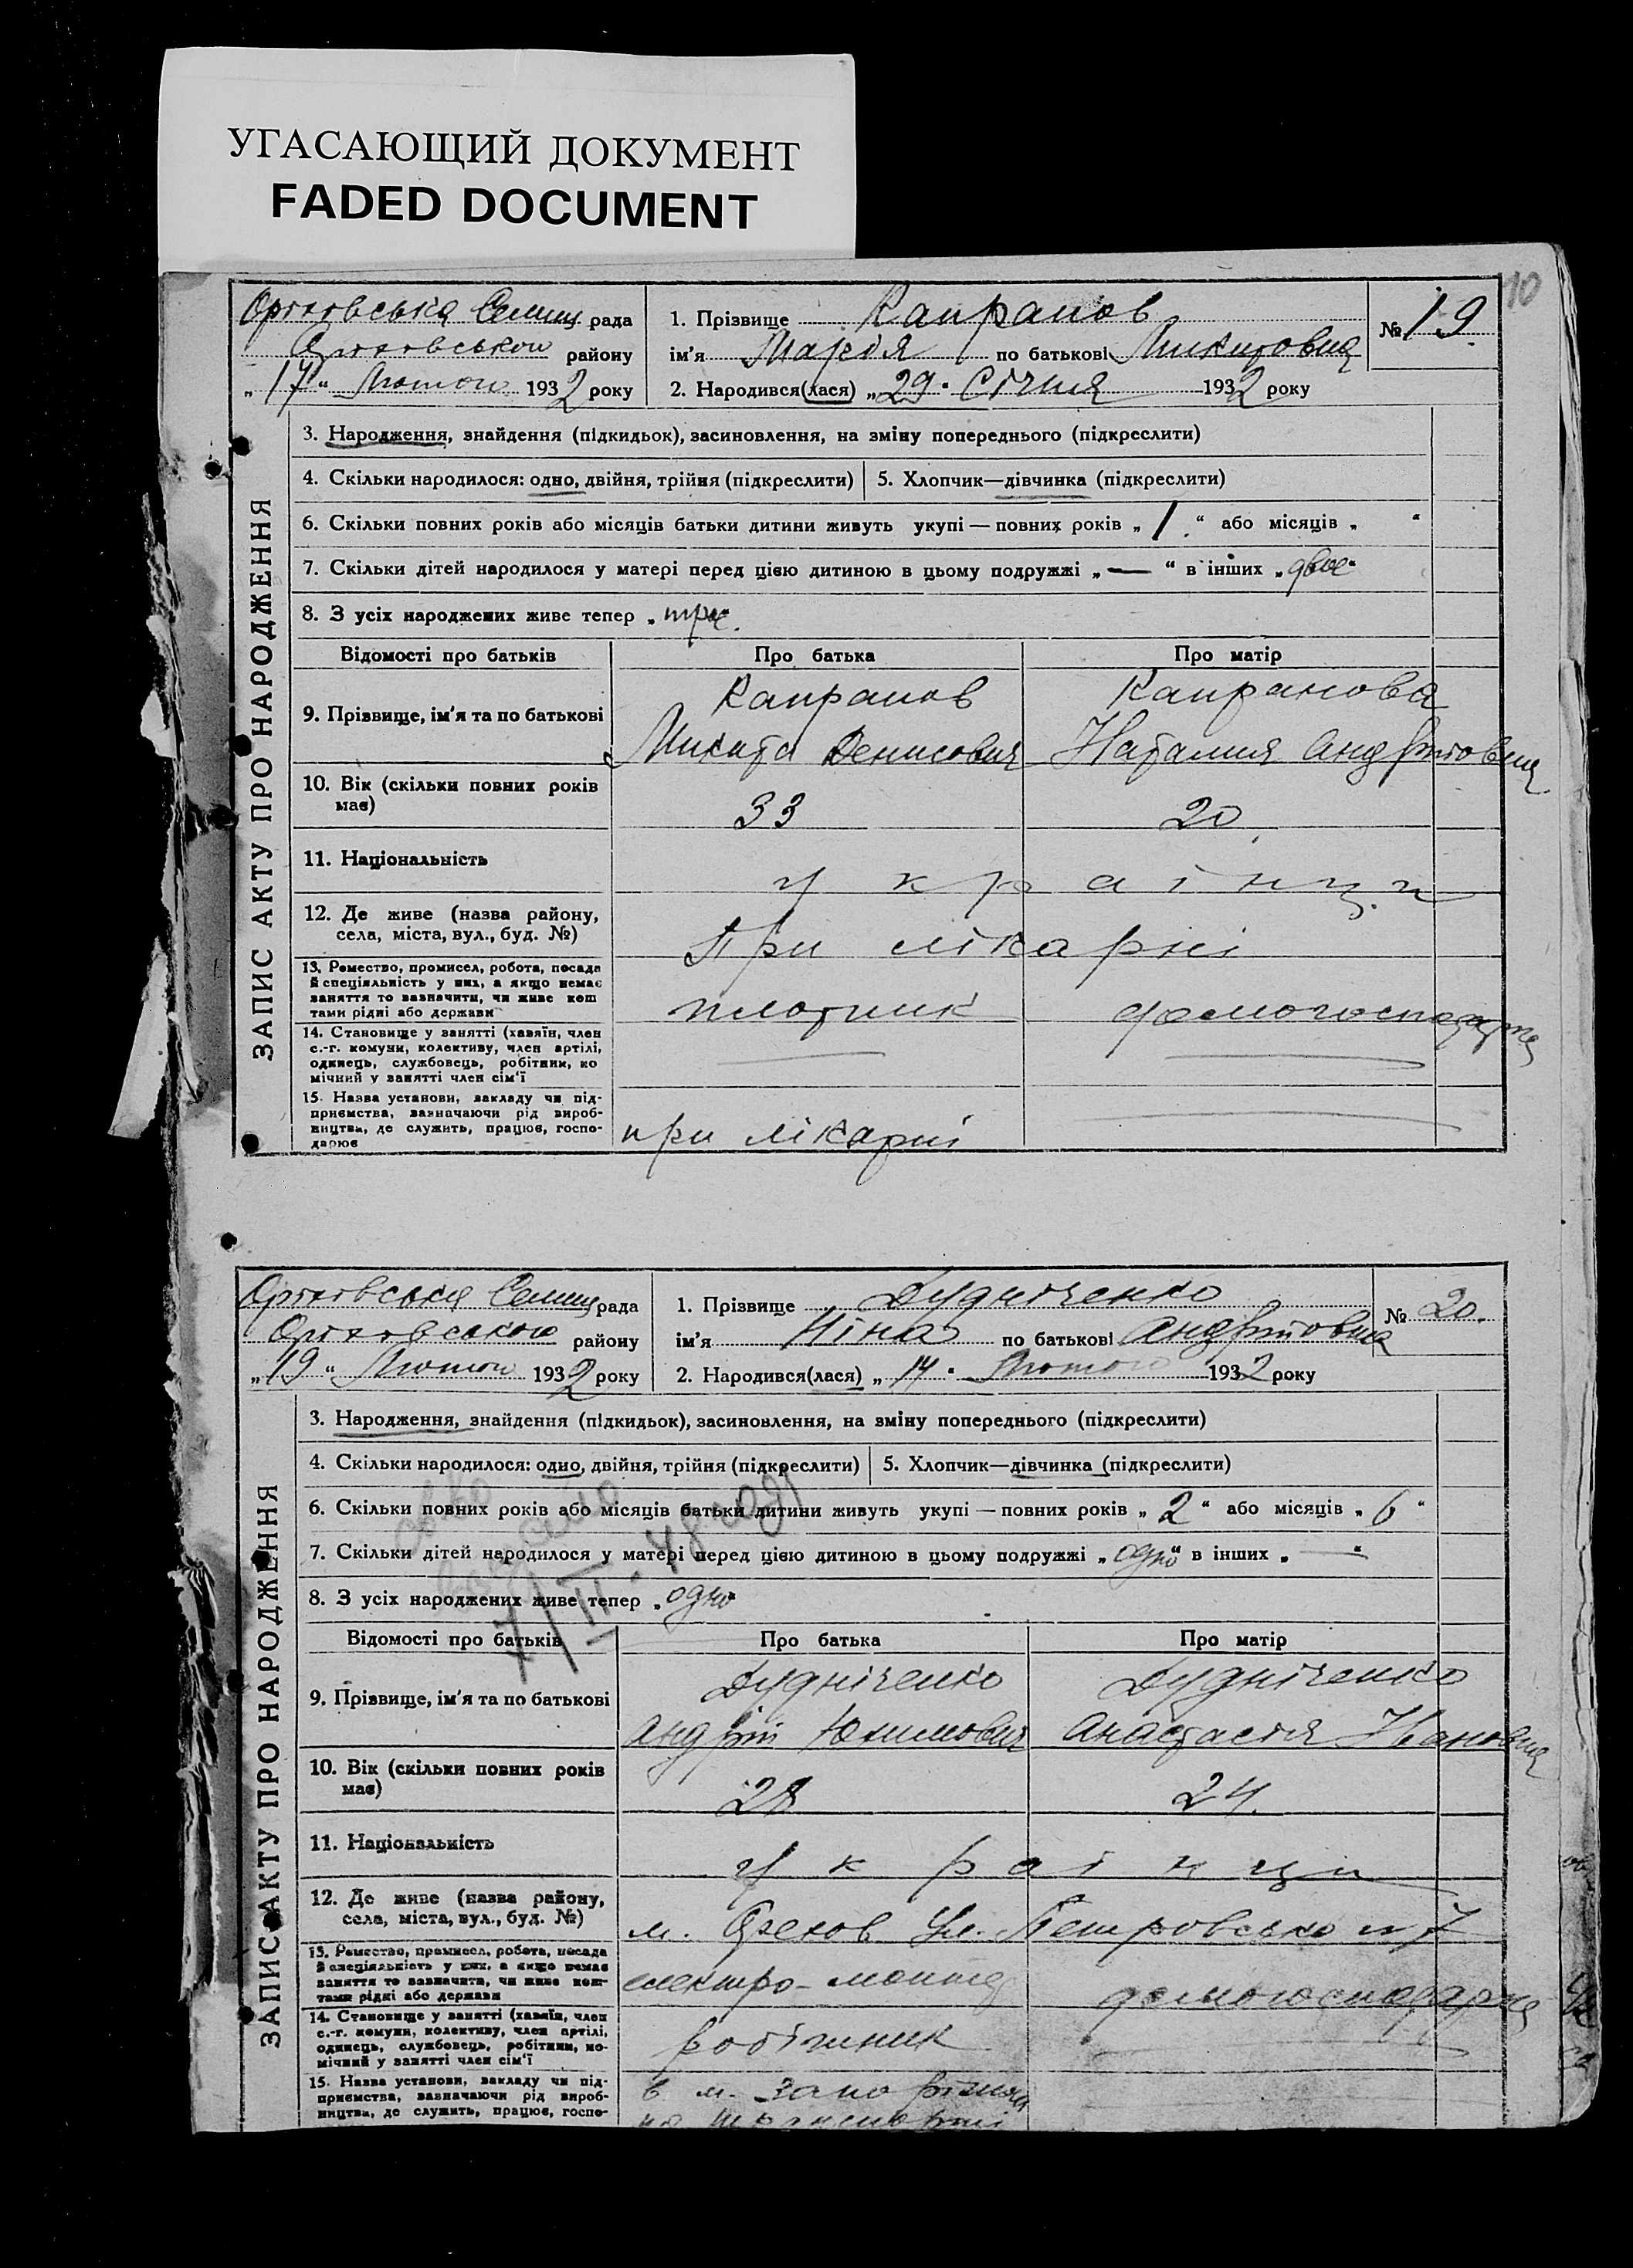 УГАСАЮЩИЙ ДОКУМЕНТ
FADED DOCUMENT
10
Оріхівська Селищ рада
Оріхівського району
„17“ Лютого 1932 року
1. Прізвище Капранов
ім'я Марія по батькові Микитовна
2. Народився(лася) „29“ Січня 1932 року
№ 19.
ЗАПИС АКТУ ПРО НАРОДЖЕННЯ
3. Народження, знайдення (підкидьок), засиновлення, на зміну попереднього (підкреслити)
4. Скільки народилося: одно, двійня, трійня (підкреслити) 5. Хлопчик—дівчинка (підкреслити)
6. Скільки повних років або місяців батьки дитини живуть укупі — повних років „1“ або місяців „ “
7. Скільки дітей народилося у матері перед цією дитиною в цьому подружжі „—“ в інших „двое“
8. З усіх народжених живе тепер „трое“
Відомості про батьків Про батька Про матір
9. Прізвище, ім'я та по батькові
Капранов Капранова
Микита Денисович Наталия Андріївна
10. Вік (скільки повних років має)
33 20
11. Національність
українци
12. Де живе (назва району, села, міста, вул., буд. №)
При лікарні
13. Ремество, промисел, робота, посада й спеціяльність у них, а якщо немає заняття то зазначити, чи живе кош тами рідні або держави
плотник домогосподарка
14. Становище у занятті (хазяїн, член с.-г. комуни, колективу, член артілі, одинець, службовець, робітник, по мічний у занятті член сім'ї
15. Назва установи, закладу чи під- приємства, зазначаючи рід вироб- ництва, де служить, працює, госпо- дарює
при лікарні
Оріхівська Селищ рада
Оріхівського району
„19“ Лютого 1932 року
1. Прізвище Дудніченко
ім'я Ніна по батькові Андріївна
2. Народився(лася) „14“ Лютого 1932 року
№ 20.
ЗАПИС АКТУ ПРО НАРОДЖЕННЯ
3. Народження, знайдення (підкидьок), засиновлення, на зміну попереднього (підкреслити)
4. Скільки народилося: одно, двійня, трійня (підкреслити) 5. Хлопчик—дівчинка (підкреслити)
6. Скільки повних років або місяців батьки дитини живуть укупі — повних років „2“ або місяців „6“
7. Скільки дітей народилося у матері перед цією дитиною в цьому подружжі „одно“ в інших „—“
8. З усіх народжених живе тепер „одно“
7/II-48 года
Відомості про батьків Про батька Про матір
9. Прізвище, ім'я та по батькові
Дудніченко Дудніченко
Андрій Юхимович Анастасія Ивановна
10. Вік (скільки повних років має)
28 24.
11. Національність
українци
12. Де живе (назва району, села, міста, вул., буд. №)
м. Орехов Ул. Петровсько n 7
13. Ремество, промисел, робота, посада й спеціяльність у них, а якщо немає заняття то зазначити, чи живе кош- тами рідні або держави
електро-монтер домогосподарка
14. Становище у занятті (хазяїн, член с.-г. комуни, колективу, член артілі, одинець, службовець, робітник, по- мічний у занятті член сім'ї
робітник
15. Назва установи, закладу чи під- приємства, зазначаючи рід вироб- ництва, де служить, працює, госпо-
в м. Запоріжжа
на транспорті